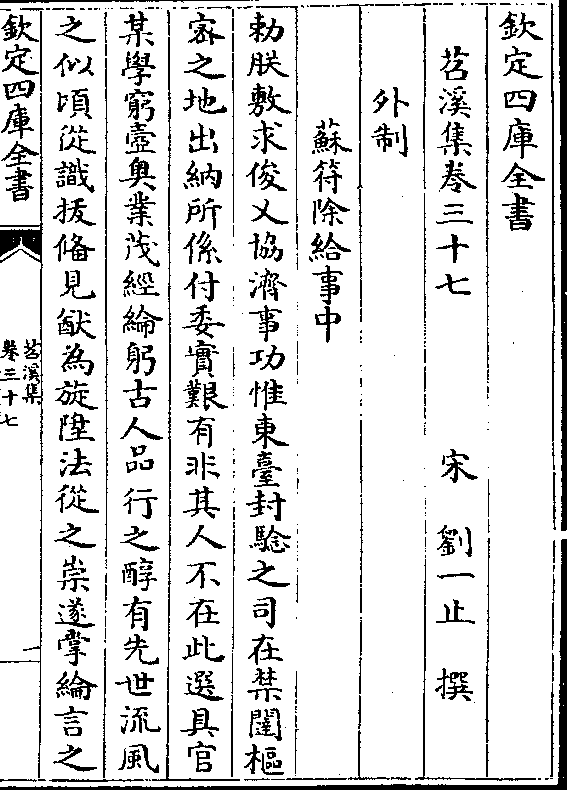 欽定四庫全書
苕溪集卷三十七 宋 劉一止 撰
外制
蘇符除給事中
勅朕敷求俊乂協濟事功惟東臺封駮之司在禁闥樞
宻之地出納所係付委實艱有非其人不在此選具官
某學窮壼奥業茂經綸躬古人品行之醇有先世流風
之似頃從識拔備見猷為旋陞法從之崇遂掌綸言之
欽定四庫全書
苕溪集
卷三十七
一